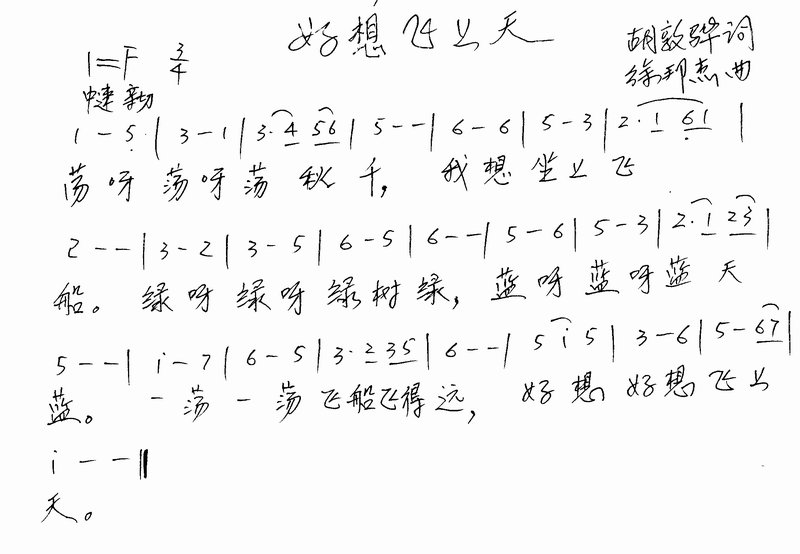 好想飞上天
1=F 3/4
胡敦骅词
徐邦杰曲
中速
1 - 5 | 3 - 1 | 3· 4 56 | 5 - - | 6 - 6 | 5 - 3 | 2· 1 61 |
荡呀荡呀荡秋千，我想坐上飞
2 - - | 3 - 2 | 3 - 5 | 6 - 5 | 6 - - | 5 - 6 | 5 - 3 | 2· 1 23 |
船。绿呀绿呀绿树绿，蓝呀蓝呀蓝天
5 - - | i - 7 | 6 - 5 | 3· 2 35 | 6 - - | 5 i 5 | 3 - 6 | 5 - 67 |
蓝。一荡一荡飞船飞得远，好想好想飞上
i - - ‖
天。